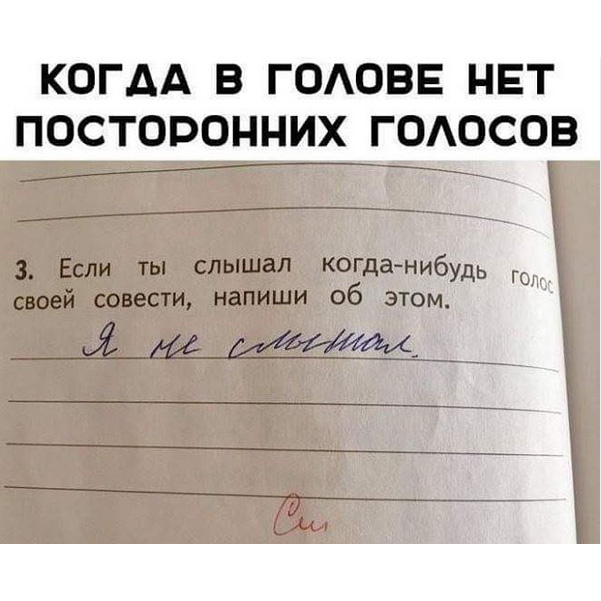 КОГДА В ГОЛОВЕ НЕТ
ПОСТОРОННИХ ГОЛОСОВ
3. Если ты слышал когда-нибудь голос
своей совести, напиши об этом.
Я не слышал.
См